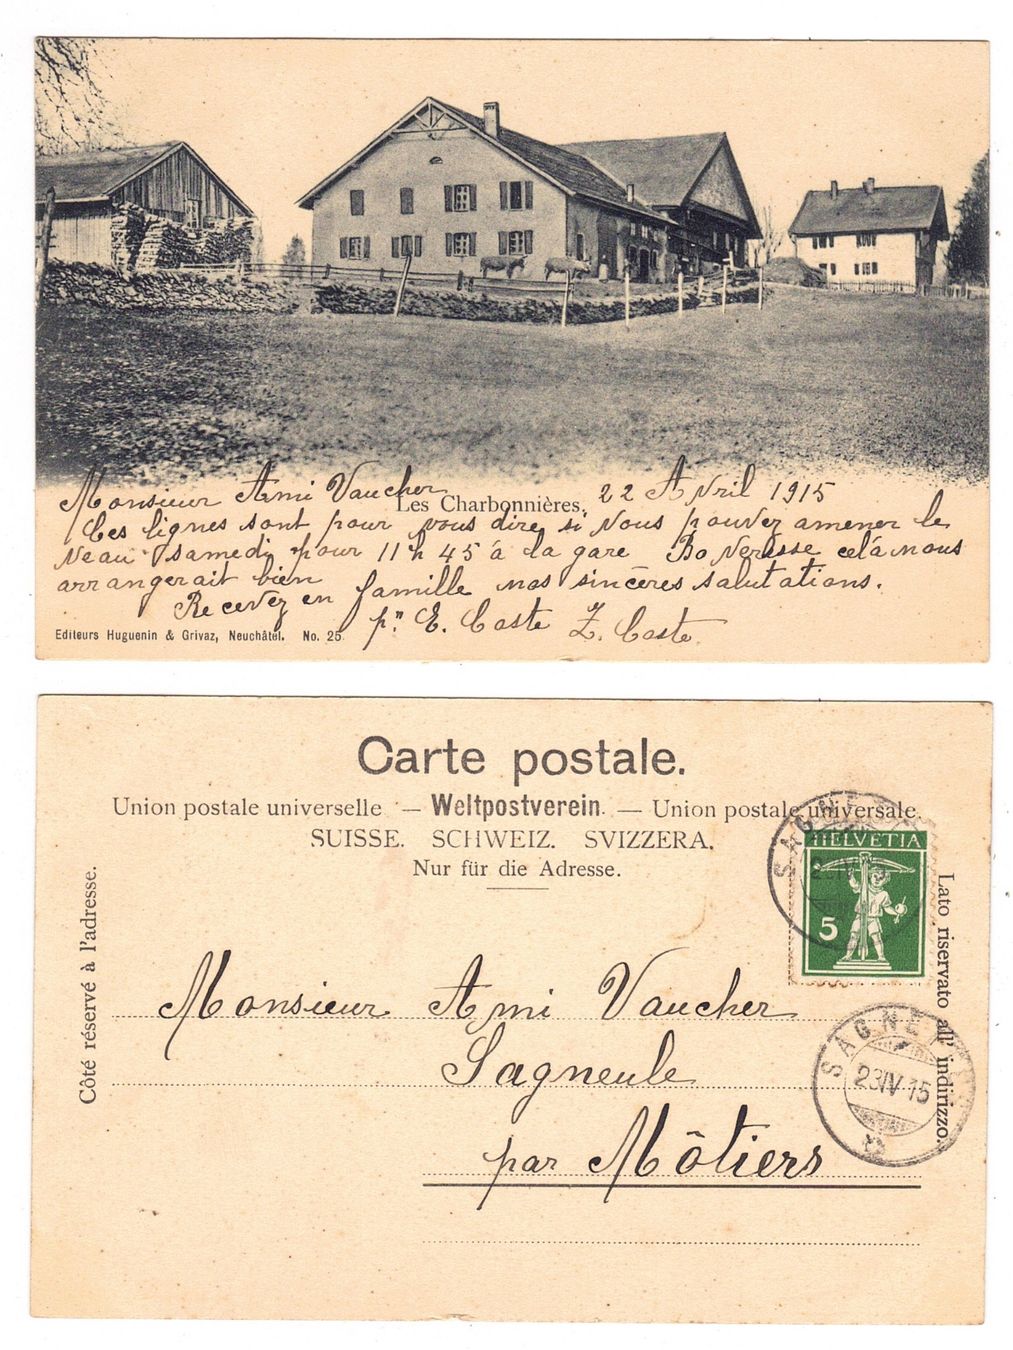 Monsieur Ami Vaucher
Les Charbonnières.
22 Avril 1915
Ces lignes sont pour vous dire si vous pouvez amener le
veau samedi pour 11h 45 à la gare Boveresse celà nous
arrangerait bien
Recevez en famille nos sincères salutations.
pr E. Coste Z. Coste
Editeurs Huguenin & Grivaz, Neuchâtel. No. 25
Carte postale.
Union postale universelle — Weltpostverein. — Union postale universale.
SUISSE. SCHWEIZ. SVIZZERA.
Nur für die Adresse.
Côté réservé à l'adresse.
Lato riservato all' indirizzo.
HELVETIA
5
Monsieur Ami Vaucher
Sagneule
par Môtiers
SAGNE
23 IV 15